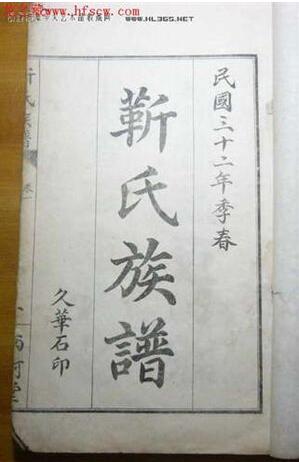 www.hfscw.com
WWW.HL365.NET
民國三十二年季春
靳氏族譜
久華石印
靳氏族譜
卷一
西河堂